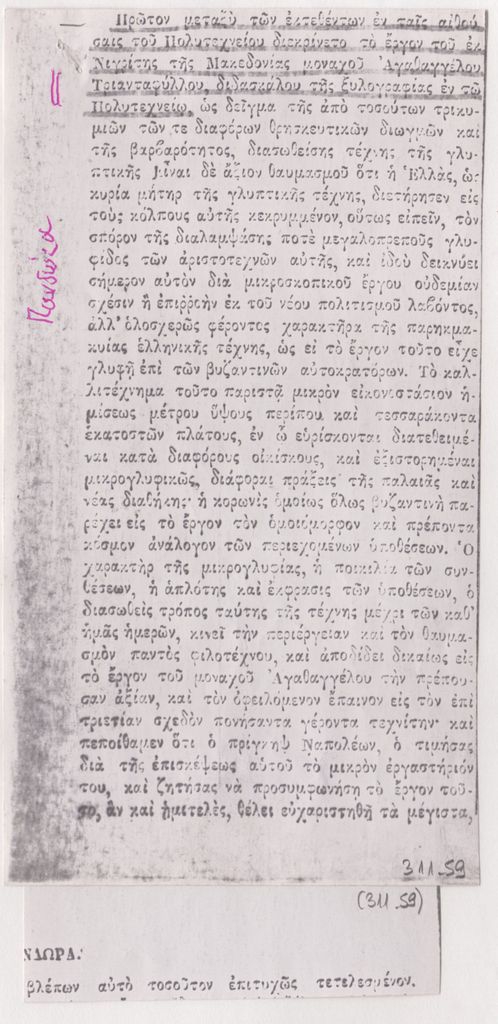 Πρῶτον μεταξὺ τῶν ἐκτεθέντων ἐν ταῖς αἰθού-
σαις τοῦ Πολυτεχνείου διεκρίνετο τὸ ἔργον τοῦ ἐκ
Νιγρίτης τῆς Μακεδονίας μοναχοῦ Ἀγαθαγγέλου
Τριανταφύλλου, διδασκάλου τῆς ξυλογραφίας ἐν τῷ
Πολυτεχνείῳ, ὡς δεῖγμα τῆς ἀπὸ τοσούτων τρικυ-
μιῶν τῶν τε διαφόρων θρησκευτικῶν διωγμῶν καὶ
τῆς βαρβαρότητος, διασωθείσης τέχνης τῆς γλυ-
πτικῆς Εἶναι δὲ ἄξιον θαυμασμοῦ ὅτι ἡ Ἑλλὰς, ὡς
κυρία μήτηρ τῆς γλυπτικῆς τέχνης, διετήρησεν εἰς
τοὺς κόλπους αὐτῆς κεκρυμμένον, οὕτως εἰπεῖν, τὸν
σπόρον τῆς διαλαμψάσης ποτὲ μεγαλοπρεποῦς γλυ-
φίδος τῶν ἀριστοτεχνῶν αὐτῆς, καὶ ἰδοὺ δεικνύει
σήμερον αὐτὸν διὰ μικροσκοπικοῦ ἔργου οὐδεμίαν
σχέσιν ἢ ἐπιρροὴν ἐκ τοῦ νέου πολιτισμοῦ λαβόντος,
ἀλλ' ὁλοσχερῶς φέροντος χαρακτῆρα τῆς παρηκμα-
κυίας ἑλληνικῆς τέχνης, ὡς εἰ τὸ ἔργον τοῦτο εἶχε
γλυφῆ ἐπὶ τῶν βυζαντινῶν αὐτοκρατόρων. Τὸ καλ-
λιτέχνημα τοῦτο παριστᾷ μικρὸν εἰκονοστάσιον ἡ-
μίσεως μέτρου ὕψους περίπου καὶ τεσσαράκοντα
ἑκατοστῶν πλάτους, ἐν ᾧ εὑρίσκονται διατεθειμέ-
ναι κατὰ διαφόρους οἰκίσκους, καὶ ἐξιστορημέναι
μικρογλυφικῶς, διάφοραι πράξεις τῆς παλαιᾶς καὶ
νέας διαθήκης· ἡ κορωνὶς ὁμοίως ὅλως βυζαντινὴ πα-
ρέχει εἰς τὸ ἔργον τὸν ὁμοιόμορφον καὶ πρέποντα
κόσμον ἀνάλογον τῶν περιεχομένων ὑποθέσεων. Ὁ
χαρακτὴρ τῆς μικρογλυφίας, ἡ ποικιλία τῶν συν-
θέσεων, ἡ ἁπλότης καὶ ἔκφρασις τῶν ὑποθέσεων, ὁ
διασωθεὶς τρόπος ταύτης τῆς τέχνης μέχρι τῶν καθ'
ἡμᾶς ἡμερῶν, κινεῖ τὴν περιέργειαν καὶ τὸν θαυμα-
σμὸν παντὸς φιλοτέχνου, καὶ ἀποδίδει δικαίως εἰς
τὸ ἔργον τοῦ μοναχοῦ Ἀγαθαγγέλου τὴν πρέπου-
σαν ἀξίαν, καὶ τὸν ὀφειλόμενον ἔπαινον εἰς τὸν ἐπὶ
τριετίαν σχεδὸν πονήσαντα γέροντα τεχνίτην· καὶ
πεποίθαμεν ὅτι ὁ πρίγκηψ Ναπολέων, ὁ τιμήσας
διὰ τῆς ἐπισκέψεως αὐτοῦ τὸ μικρὸν ἐργαστήριόν
του, καὶ ζητήσας νὰ προσυμφωνήσῃ τὸ ἔργον τοῦ-
το, ἂν καὶ ἡμιτελὲς, θέλει εὐχαριστηθῆ τὰ μέγιστα,
Πανδώρα
311.59
(311.59)
ΝΔΩΡΑ.
βλέπων αὐτὸ τοσοῦτον ἐπιτυχῶς τετελεσμένον.